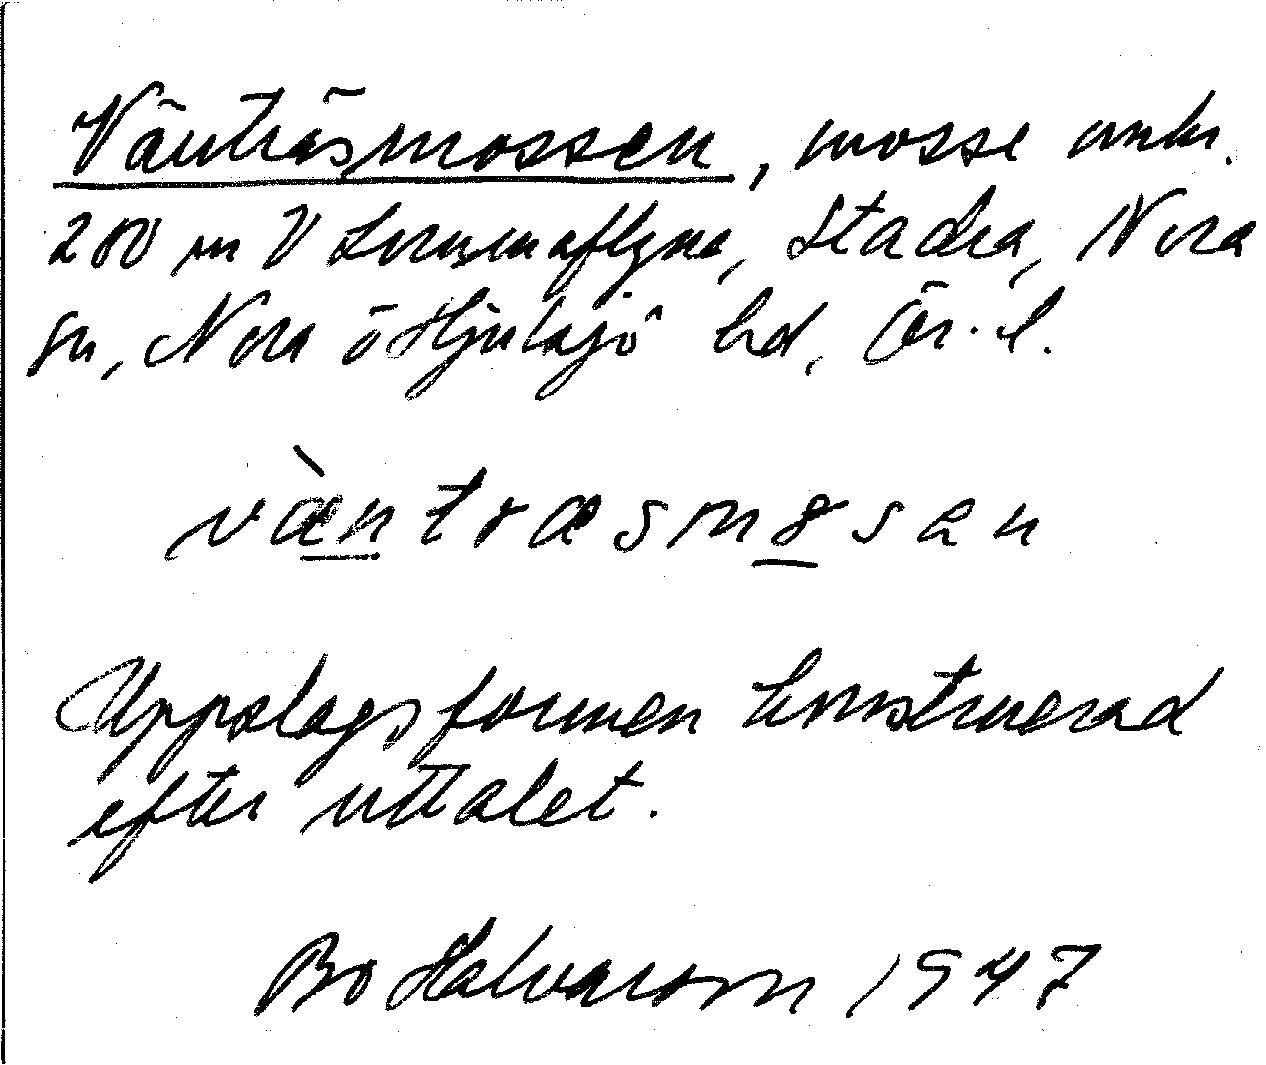 Vänträsmossen, mosse omkr.
200 m V Lorsenaflyna, Stadra, Nora
sn, Nora o Hjulsjö hd, Ör. l.
væ̀ntræsmɷsən
Uppslagsformen konstruerad
efter uttalet.
Bo Halvarson 1947